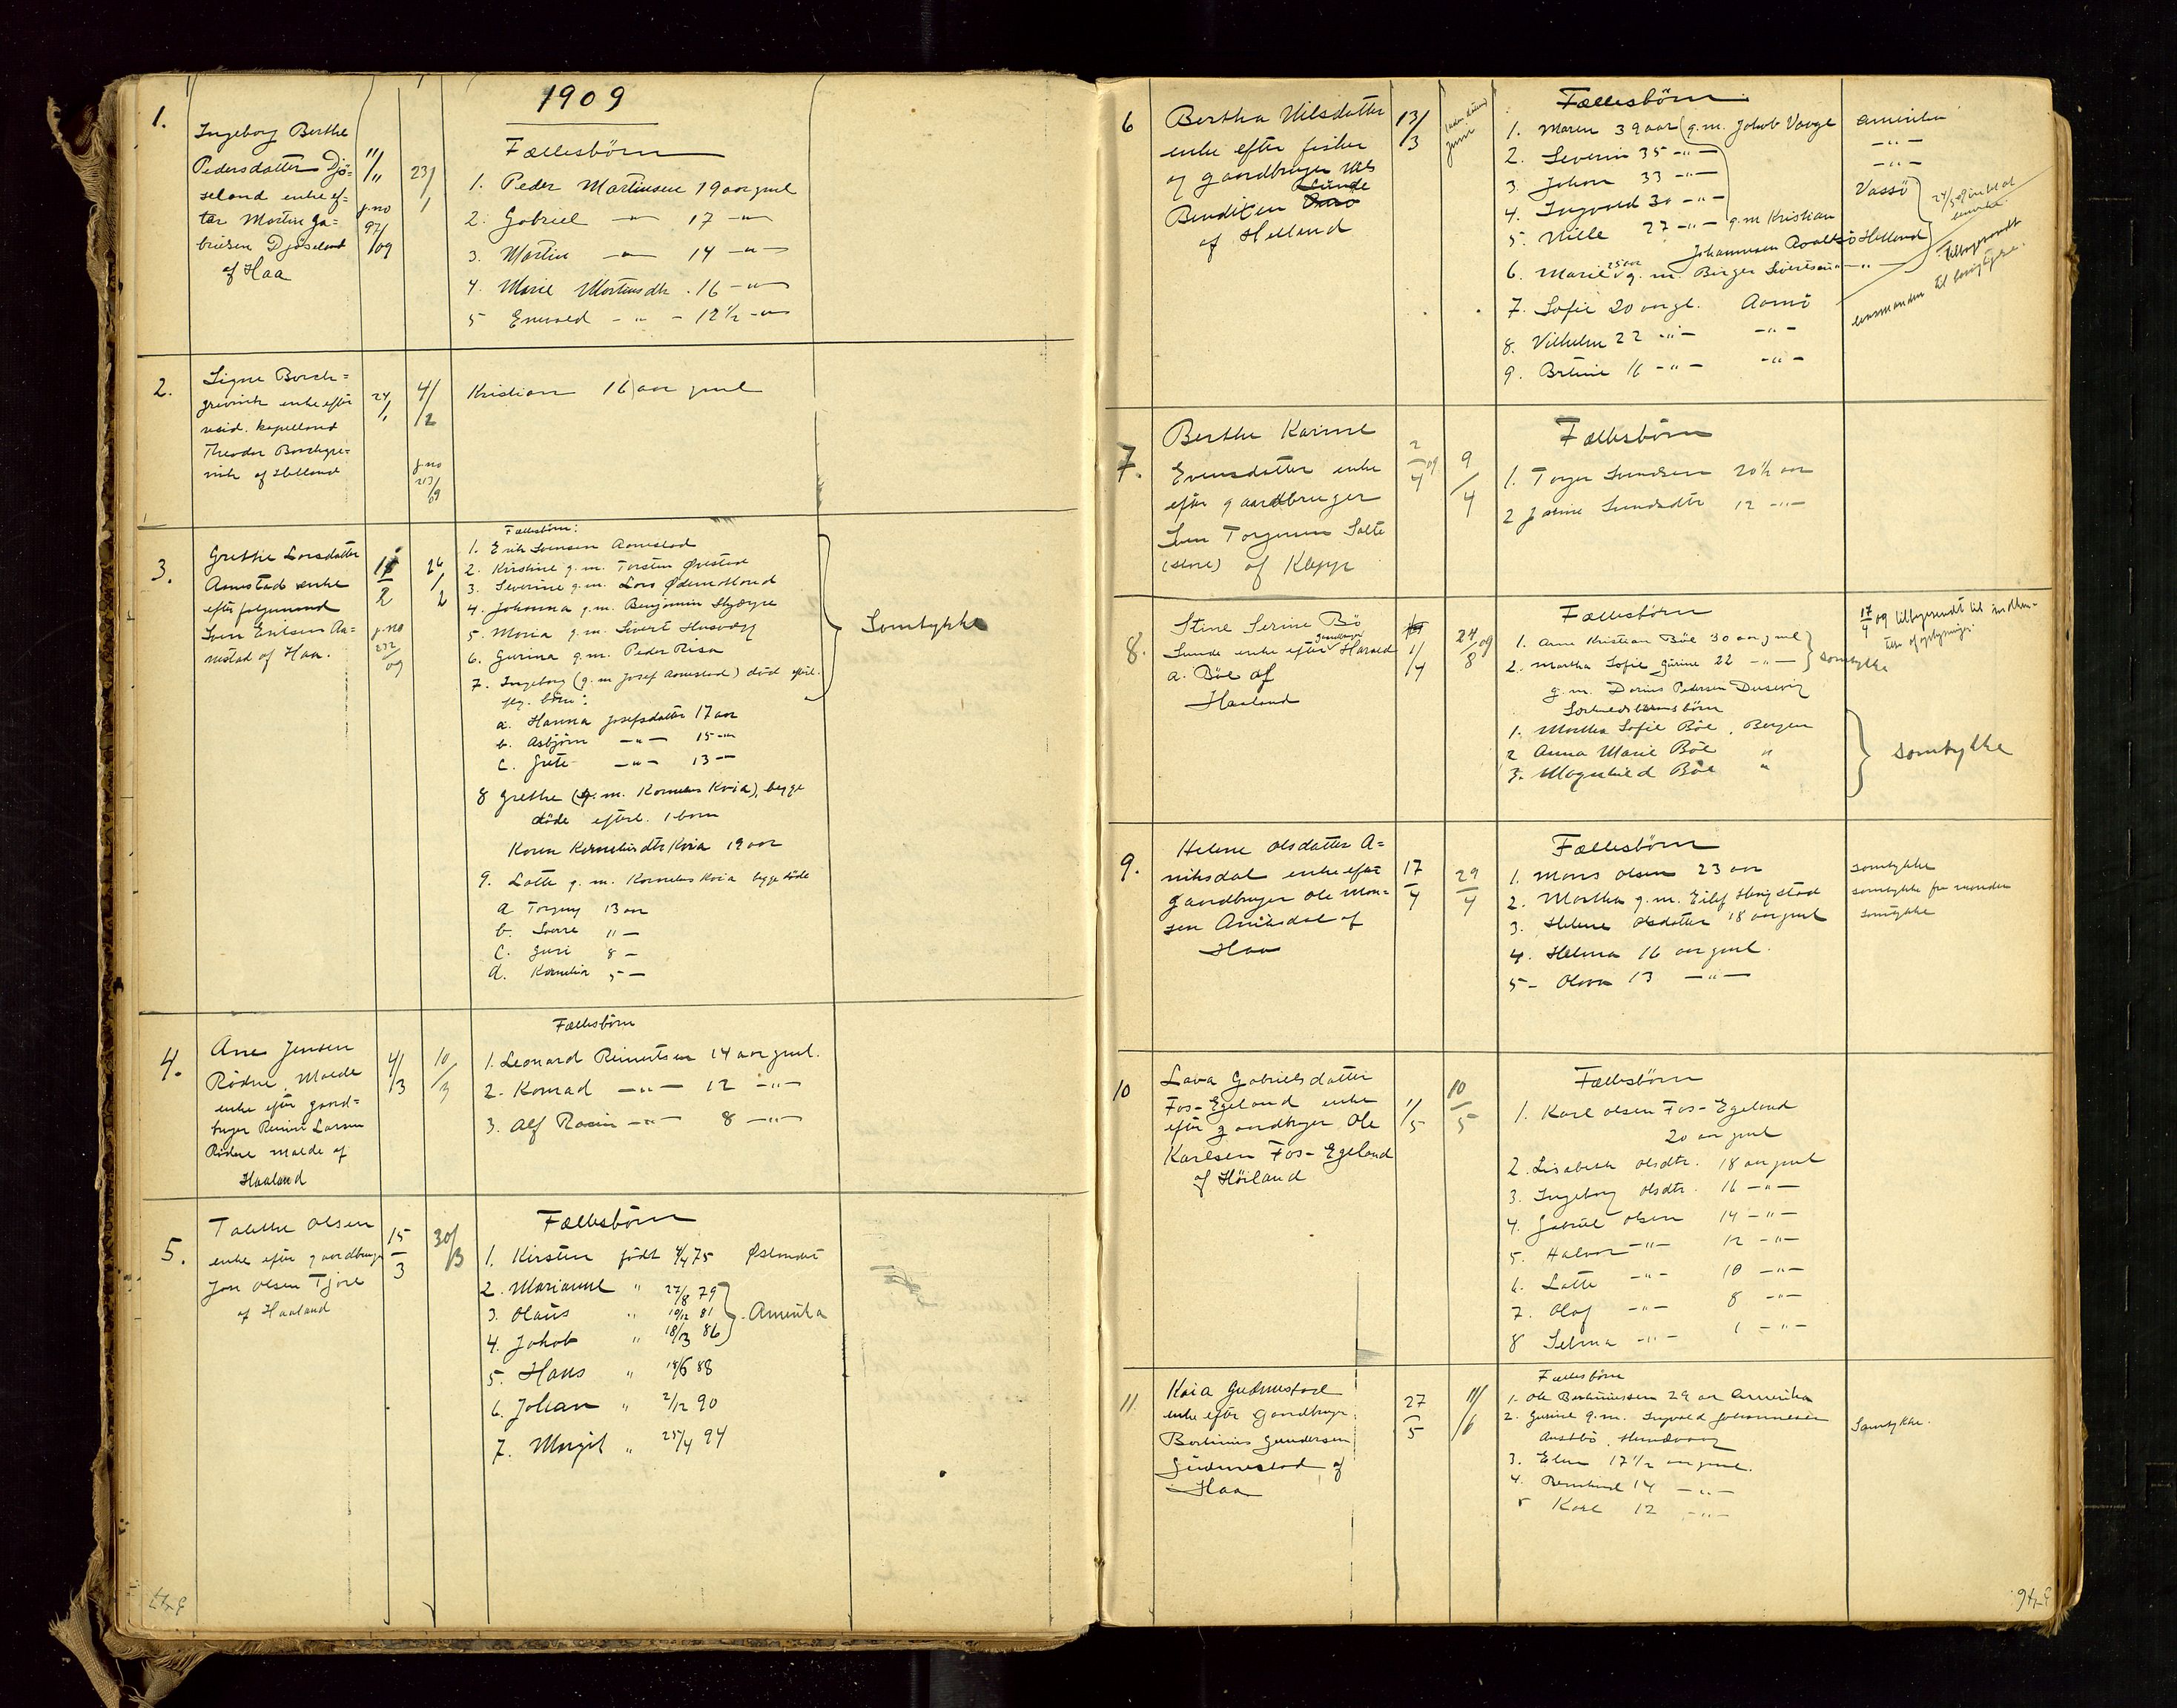 1909
1.
Ingeborg Berthe
Pedersdatter Djö=
seland enke ef=
ter Martin Ga=
brielsen Djöseland
af Haa
11/11
j.no
97/09
23/1
Fællesbörn
1. Peder Martinsen 19 aar gml
2. Gabriel —"— 17 —"—
3. Martin —"— 14 —"—
4. Marie Martinsdtr. 16 —"—
5 Enevald - " - 12 1/2 —"—
2.
Signe Borch=
grevink enke efter
resid. kapelland
Theodor Borchgre=
vink af Hetland
24/1
4/2
j.no
213/09
Kristian 16 aar gml
3.
Grethe Larsdatter
Aanestad enke
efter folgemand
Sven Eriksen Aa=
nestad af Haa.
2
j.no
232/09
26/2
Fællesbörn:
1. Erik Svensen Aanestad
2. Kirstine g.m. Torsten Ørestad
3. Severine g.m. Lars Ødemotland
4. Johanna g.m. Benjamin Skjærpe
5. Maria g.m. Sivert Husvæg
6. Gurina g.m. Peder Risa
7. Ingeborg (g.m. Josef Aanestad) död efterl.
flg. börn:
a. Hanna Josefsdatter 17 aar
b. Asbjörn —"— 15 —"—
c. Grete —"— 13 —
Samtykke
8 Grethe (g.m. Kornelius Kvia), begge
döde efterl. 1 barn
Karen Korneliusdtr Kvia 19 aar
9. Lotte g.m. Kornelius Kvia begge döde
a Torger 13 aar
b. Sverre 11 —
c. Guri 8 —
d. Kornelia 5 —
4.
Ane Jensen
Rödne, Malde
enke efter gaard=
bruger Reinert Larsen
Rödne Malde af
Haaland
4/3
10/3
Fællesbörn
1. Leonard Reinertsen 14 aar gml.
2. Konrad —"— 12 —"—
3. Alf Rasin —"— 8 —"—
5.
Tolette Olsen
enke efter gaardbruger
Jon Olsen Tjore
af Haaland
15/3
30/3
Fællesbörn
1. Kirsten födt 4/4 75
2. Marianne " 27/8 79
3. Olaus " 19/12 81
4. Jakob " 18/3 86
Amerika
5. Hans " 18/6 88
6. Johan " 2/12 90
7. Margit " 25/4 94
6
Bertha Nilsdatter
enke efter fisker
og gaardbruger Nils
Bendiksen
af Hetland
13/3
Juni
Fællesbörn
1. Maren 39 aar (g.m. Jakob Vaage Amerika
2. Severin 35 —"— —"—
3. Johan 33 —"— —"—
4. Ingvald 30 —"— Vassö
5. Nille 27 —"— g.m. Kristian
Johannesen Hetland
6. Marie 25 aar g.m. Birger Sivertsen —"—
7. Sofie 20 aar gl.
8. Vilhelm 22 —"— —"—
9. Bertine 16 —"— —"—
tilbagesendt
lensmanden til
7.
Berthe Karine
Evensdatter enke
efter gaardbruger
Sven Torgersen Salte
(store) af Klepp
2/4 09
9/4
Fællesbörn
1. Torger Svendsen 20 1/2 aar
2 Josine Svendsdtr 12 —"—
8.
Stine Serine Bö
Sunde enke efter gaardbruger Harald
A. Böe af
Haaland
1/4
24/8 09
Fællesbörn
1. Arne Kristian Böe 30 aar gml
2. Martha Sofie Gurine 22 —"—
samtykke
g.m. Darius Pedersen Dusevig
Særkuldsbarnsbörn
1. Martha Sofie Böe, Bergen
2 Anna Marie Böe "
3. Magnhild Böe "
samtykke
17/4 09 tilbagesendt til indhen-
telse af oplysninger
9.
Helene Olsdatter A=
niksdal enke efter
gaardbruger Ole Mon=
sen Aniksdal af
Haa
17/4
29/4
Fællesbörn
1. Mons Olsen 23 aar samtykke
2. Martha g.m. Eilef Haugstad samtykke fra manden
3. Helene Olsdatter 18 aar gml samtykke
4. Helma 16 aar gml.
5- Olava 13 —"—
10
Lava Gabrielsdatter
Fos-Egeland enke
efter gaardbruger Ole
Karlsen Fos-Egeland
af Höiland
1/5
10/5
Fællesbörn
1. Karl Olsen Fos-Egeland
20 aar gml
2. Lisabeth Olsdtr. 18 aar gml
3. Ingeborg Olsdtr. 16 —"—
4. Gabriel Olsen 14 —"—
5. Halvor —"— 12 —"—
6. Lotte —"— 10 —"—
7. Olaf —"— 8 —"—
8 Selma —"— 1 —"—
11
Kaia Gudmestad
enke efter gaardbruger
Bertinius Gundersen
Gudmestad af
Haa
27/5
11/6
Fællesbörn
1. Ole Bertiniussen 29 aar Amerika
2. Gurine g.m. Ingvald Johannesen
Austbö, Hundvaag
Samtykke.
3. Elen 17 1/2 aar gml.
4. Bernhard 14 —"—
5 Karl 12 —"—